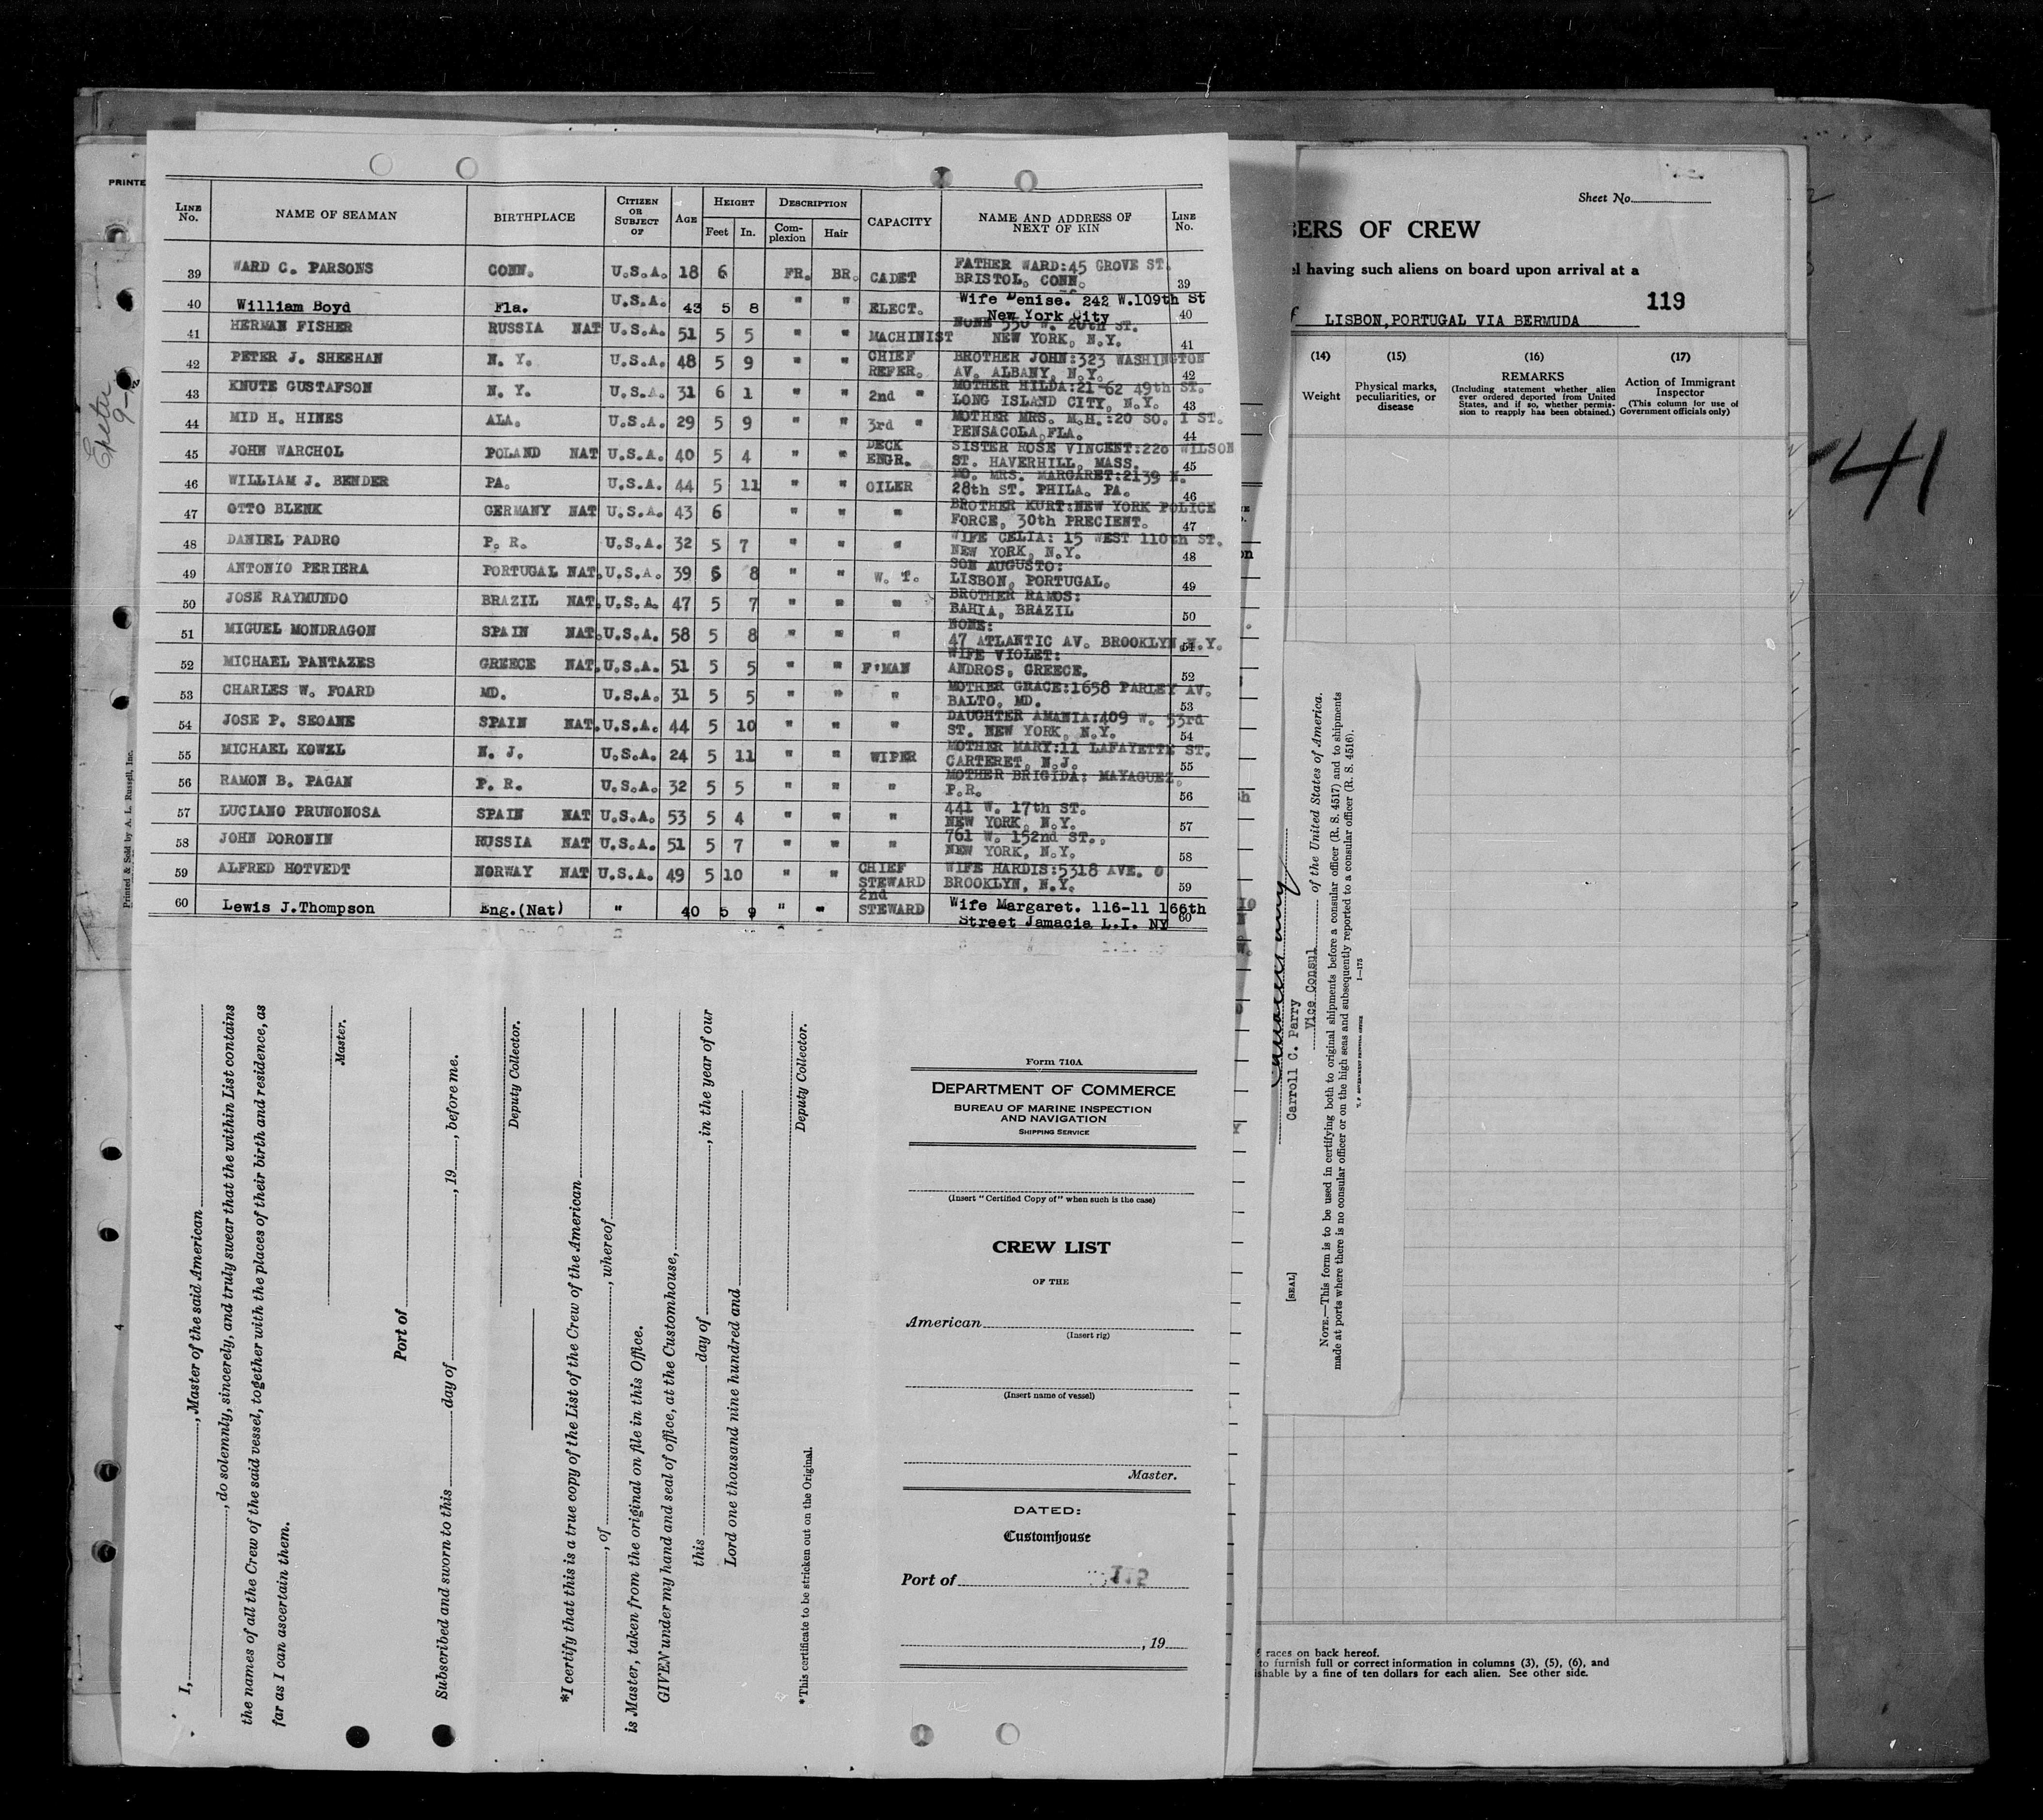 PRINTE
Exeter
9-
Printed & Sold by A. L. Russell, Inc.
4
LINE No. NAME OF SEAMAN BIRTHPLACE CITIZEN OR SUBJECT OF AGE HEIGHT Feet In. DESCRIPTION Complexion Hair CAPACITY NAME AND ADDRESS OF NEXT OF KIN LINE No.
39 WARD C. PARSONS CONN. U.S.A. 18 6 FR. BR. CADET FATHER WARD:45 GROVE ST. BRISTOL, CONN. 39
40 William Boyd Fla. U.S.A. 43 5 8 " " ELECT. Wife Denise. 242 W.109th St New York City 40
41 HERMAN FISHER RUSSIA NAT U.S.A. 51 5 5 " " MACHINIST NONE 550 W. 20th ST. NEW YORK, N.Y. 41
42 PETER J. SHEEHAN N. Y. U.S.A. 48 5 9 " " CHIEF REFER. BROTHER JOHN:323 WASHINGTON AV. ALBANY, N.Y. 42
43 KNUTE GUSTAFSON N. Y. U.S.A. 31 6 1 " " 2nd " MOTHER HILDA:21-62 49th ST. LONG ISLAND CITY, N.Y. 43
44 MID H. HINES ALA. U.S.A. 29 5 9 " " 3rd " MOTHER MRS. M.H.:20 SO. I ST. PENSACOLA,FLA. 44
45 JOHN WARCHOL POLAND NAT U.S.A. 40 5 4 " " DECK ENGR. SISTER ROSE VINCENT:226 WILSON ST. HAVERHILL, MASS. 45
46 WILLIAM J. BENDER PA. U.S.A. 44 5 11 " " OILER MO. MRS. MARGARET:2139 N. 28th ST. PHILA. PA. 46
47 OTTO BLENK GERMANY NAT U.S.A. 43 6 " " " BROTHER KURT:NEW YORK POLICE FORCE, 30th PRECIENT. 47
48 DANIEL PADRO P. R. U.S.A. 32 5 7 " " " WIFE CELIA: 15 WEST 110th ST. NEW YORK, N.Y. 48
49 ANTONIO PERIERA PORTUGAL NAT. U.S.A. 39 5 8 " " W. T. SON AUGUSTO: LISBON, PORTUGAL. 49
50 JOSE RAYMUNDO BRAZIL NAT. U.S.A. 47 5 7 " " " BROTHER RAMOS: BAHIA, BRAZIL 50
51 MIGUEL MONDRAGON SPAIN NAT. U.S.A. 58 5 8 " " " NONE: 47 ATLANTIC AV. BROOKLYN,N.Y. 51
52 MICHAEL PANTAZES GREECE NAT. U.S.A. 51 5 5 " " F'MAN WIFE VIOLET: ANDROS, GREECE. 52
53 CHARLES W. FOARD MD. U.S.A. 31 5 5 " " " MOTHER GRACE:1658 PARLEY AV. BALTO, MD. 53
54 JOSE P. SEOANE SPAIN NAT. U.S.A. 44 5 10 " " " DAUGHTER AMANIA:409 W. 53rd ST. NEW YORK, N.Y. 54
55 MICHAEL KOWZL N. J. U.S.A. 24 5 11 " " WIPER MOTHER MARY:11 LAFAYETTE ST. CARTERET, N.J. 55
56 RAMON B. PAGAN P. R. U.S.A. 32 5 5 " " " MOTHER BRIGIDA: MAYAGUEZ, P.R. 56
57 LUCIANO PRUNONOSA SPAIN NAT U.S.A. 53 5 4 " " " 441 W. 17th ST. NEW YORK, N.Y. 57
58 JOHN DORONIN RUSSIA NAT U.S.A. 51 5 7 " " " 761 W. 152nd ST., NEW YORK, N.Y. 58
59 ALFRED HOTVEDT NORWAY NAT U.S.A. 49 5 10 " " CHIEF STEWARD WIFE HARDIS:5318 AVE. O BROOKLYN, N.Y. 59
60 Lewis J.Thompson Eng.(Nat) " 40 5 9 " " 2nd STEWARD Wife Margaret. 116-11 166th Street Jamacia L.I. NY 60
I, , Master of the said American
, do solemnly, sincerely, and truly swear that the within List contains
the names of all the Crew of the said vessel, together with the places of their birth and residence, as
far as I can ascertain them.
Master.
Port of
Subscribed and sworn to this day of , 19 , before me.
Deputy Collector.
*I certify that this is a true copy of the List of the Crew of the American
, of , whereof
is Master, taken from the original on file in this Office.
GIVEN under my hand and seal of office, at the Customhouse,
this day of , in the year of our
Lord one thousand nine hundred and
Deputy Collector.
*This certificate to be stricken out on the Original.
Form 710A
DEPARTMENT OF COMMERCE
BUREAU OF MARINE INSPECTION
AND NAVIGATION
SHIPPING SERVICE
(Insert "Certified Copy of" when such is the case)
CREW LIST
OF THE
American
(Insert rig)
(Insert name of vessel)
Master.
DATED:
Customhouse
Port of
, 19
Sheet No.
BERS OF CREW
el having such aliens on board upon arrival at a
119
f LISBON,PORTUGAL VIA BERMUDA
(14) (15) (16) (17)
Weight
Physical marks, peculiarities, or disease
REMARKS
(Including statement whether alien ever ordered deported from United States, and if so, whether permission to reapply has been obtained.)
Action of Immigrant Inspector
(This column for use of Government officials only)
41
Carroll C. Parry
Vice Consul of the United States of America.
[SEAL]
NOTE.—This form is to be used in certifying both to original shipments before a consular officer (R. S. 4517) and to shipments
made at ports where there is no consular officer or on the high seas and subsequently reported to a consular officer (R. S. 4516).
1—175
races on back hereof.
to furnish full or correct information in columns (3), (5), (6), and
shable by a fine of ten dollars for each alien. See other side.